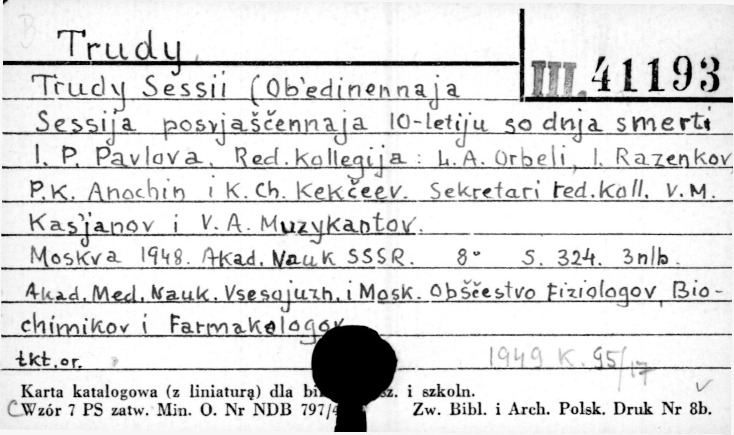 Trudy.
III. 41193
Trudy Sessii (Ob'edinennaja
Sessija posvjaščennaja 10-letiju so dnja smerti
I. P. Pavlova. Red. kollegija: L. A. Orbeli, I. Razenkov
P.K. Anochin i K. Ch. Kekčeev. Sekretari red. koll. V. M.
Kas'janov i V. A. Muzykantov.
Moskva 1948. Akad. Nauk SSSR. 8° S. 324. 3nlb.
Akad. Med. Nauk. Vsesojuzn. i Mosk. Obščestvo Fiziologov, Bio-
chimikov i Farmakologov
tkt. or.
1949 K. 95/17
Karta katalogowa (z liniaturą) dla sz. i szkoln.
Wzór 7 PS zatw. Min. O. Nr NDB 797/4 Zw. Bibl. i Arch. Polsk. Druk Nr 8b.